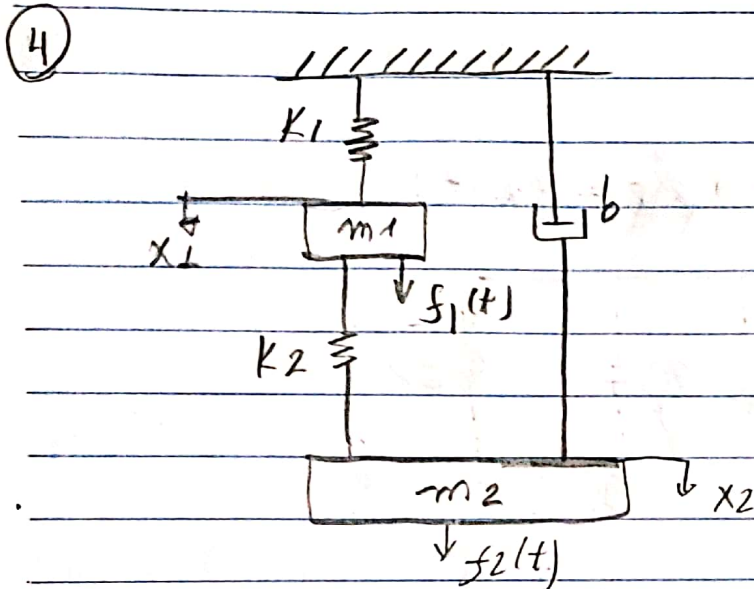 4
K1
m1
b
x1
f1(t)
K2
m2
x2
f2(t)